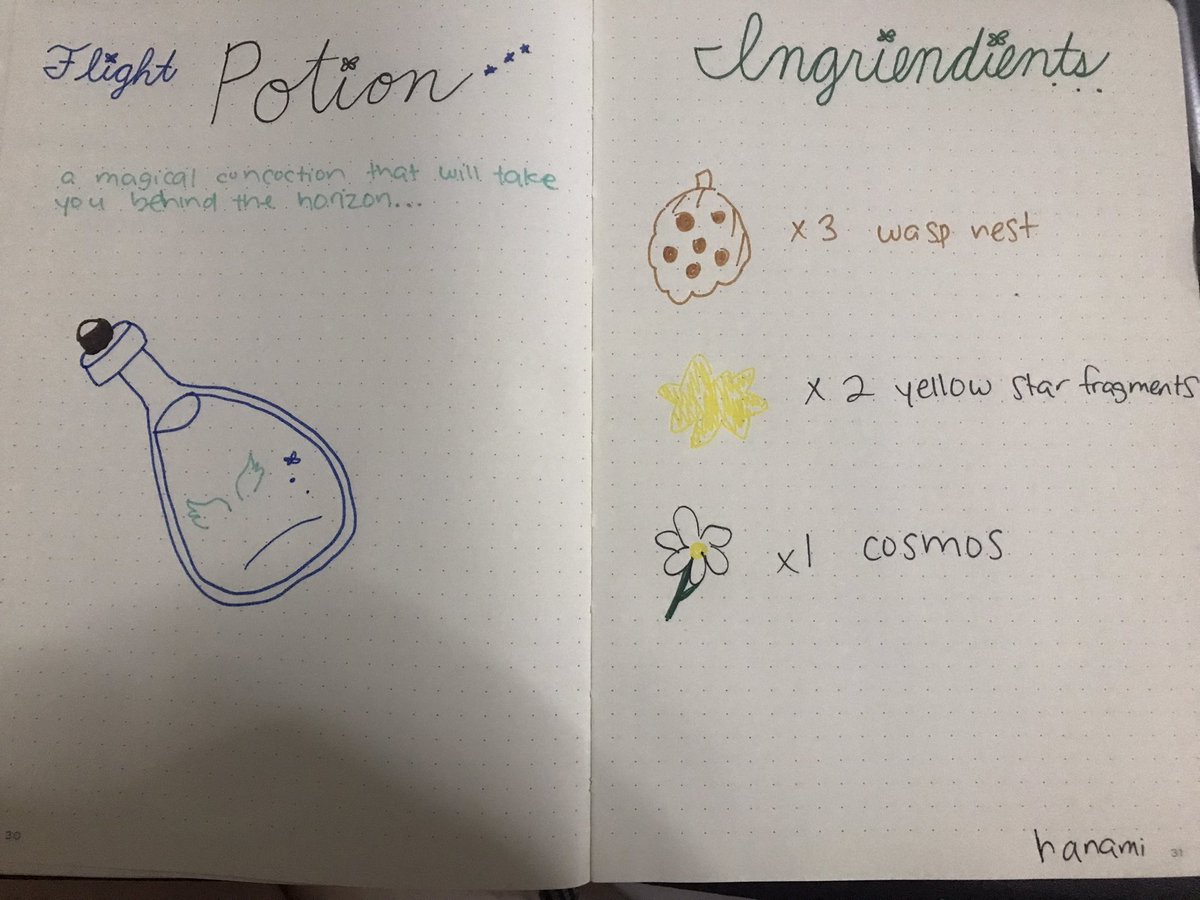 Flight Potion...
a magical concoction that will take
you behind the horizon...
30
Ingriendients...
x 3 wasp nest
x 2 yellow star fragments
x1 cosmos
hanami
31